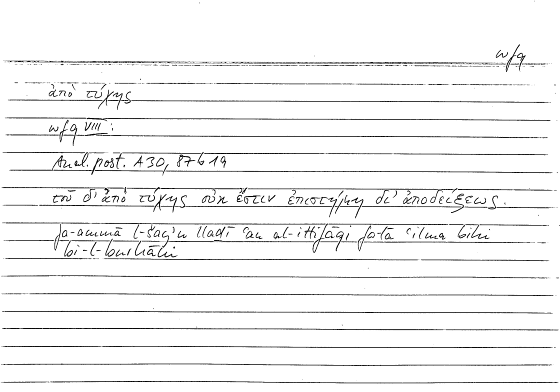 wfq
ἀπὸ τύχης
wfq VIII:
Anal. post. A30, 87b19
τοῦ δ' ἀπὸ τύχης οὐκ ἔστιν ἐπιστήμη δι' ἀποδείξεως.
fa-ammā l-šay'u lladī ʿan al-ittifāqi fa-lā ʿilma bihi
bi-l-burhāni